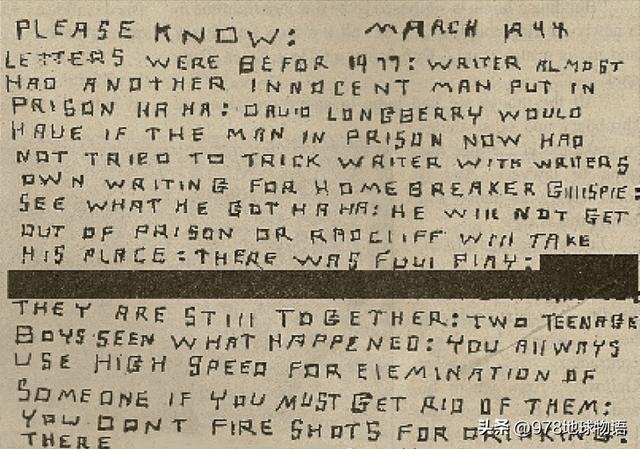 PLEASE KNOW: MARCH 1944
LETTERS WERE BEFOR 1977: WRITER ALMOST
HAD ANOTHER INNOCENT MAN PUT IN
PRISON HA HA: DAVID LONGBERRY WOULD
HAVE IF THE MAN IN PRISON NOW HAD
NOT TRIED TO TRICK WRITER WITH WRITERS
OWN WRITING FOR HOMEBREAKER GILLISPIE:
SEE WHAT HE GOT HA HA: HE WILL NOT GET
OUT OF PRISON OR RADCLIFF WILL TAKE
HIS PLACE: THERE WAS FOUL PLAY:
THEY ARE STILL TOGETHER: TWO TEENAGE
BOYS SEEN WHAT HAPPENED: YOU ALLWAYS
USE HIGH SPEED FOR ELEMINATION OF
SOMEONE IF YOU MUST GET RID OF THEM:
YOU DONT FIRE SHOTS FOR DRINKING:
THERE
头条 @978地球物语